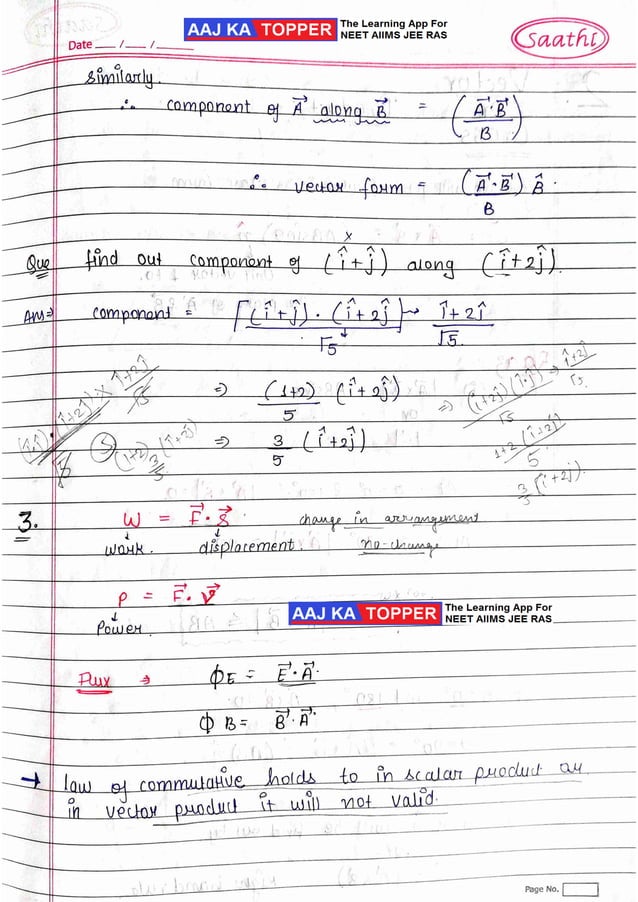 AAJ KA TOPPER The Learning App For NEET AIIMS JEE RAS
Date __/__/__ Saathi
Similarly.
∴ component of A⃗ along B⃗ = (A⃗·B⃗ / B)
∴ vector form = (A⃗·B⃗) B̂ / B
Que find out component of (î+ĵ) along (î+2ĵ).
Ans⇒ component = [(î+ĵ)·(î+2ĵ) / √5] î+2ĵ / √5
⇒ (1+2) / 5 (î+2ĵ)
⇒ 3/5 (î+2ĵ)
3. W = F⃗·S⃗ change in arrangement
work. displacement. no-change
P = F⃗·V⃗
Power.
AAJ KA TOPPER The Learning App For NEET AIIMS JEE RAS
Flux ⇒ ΦE = E⃗·A⃗
ΦB = B⃗·A⃗
→ law of commutative holds to in scalar product as
in vector product it will not valid.
Page No.